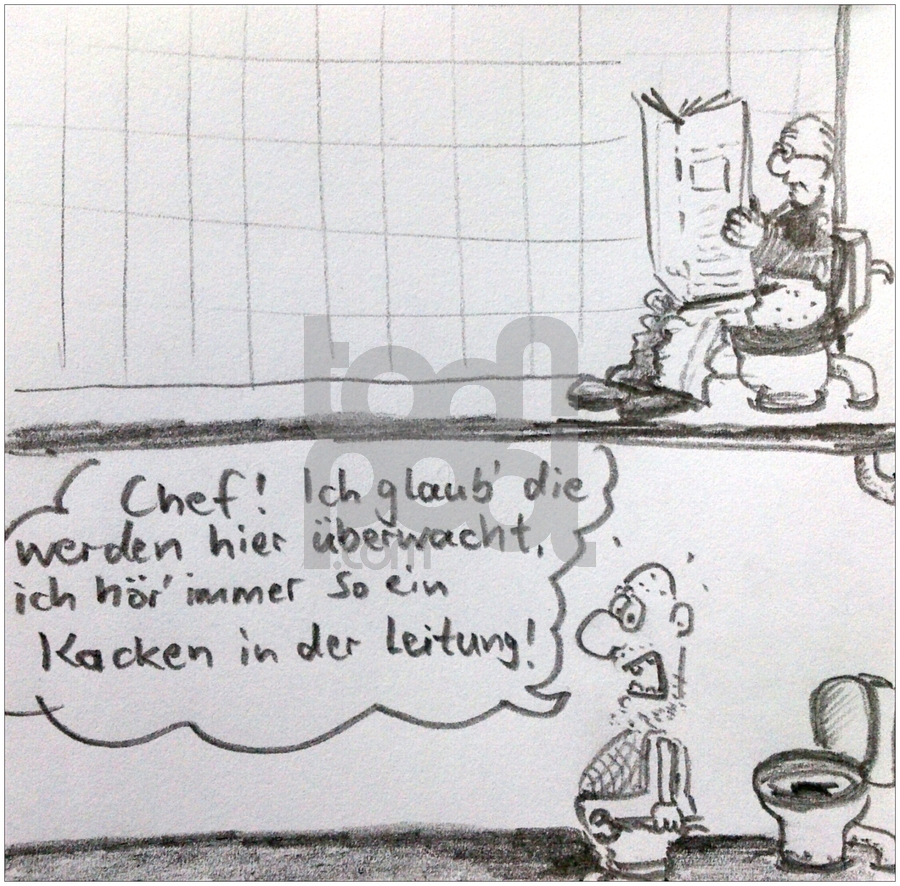 Chef! Ich glaub' die
werden hier überwacht,
ich hör' immer so ein
Kacken in der Leitung!
toonpool
.com